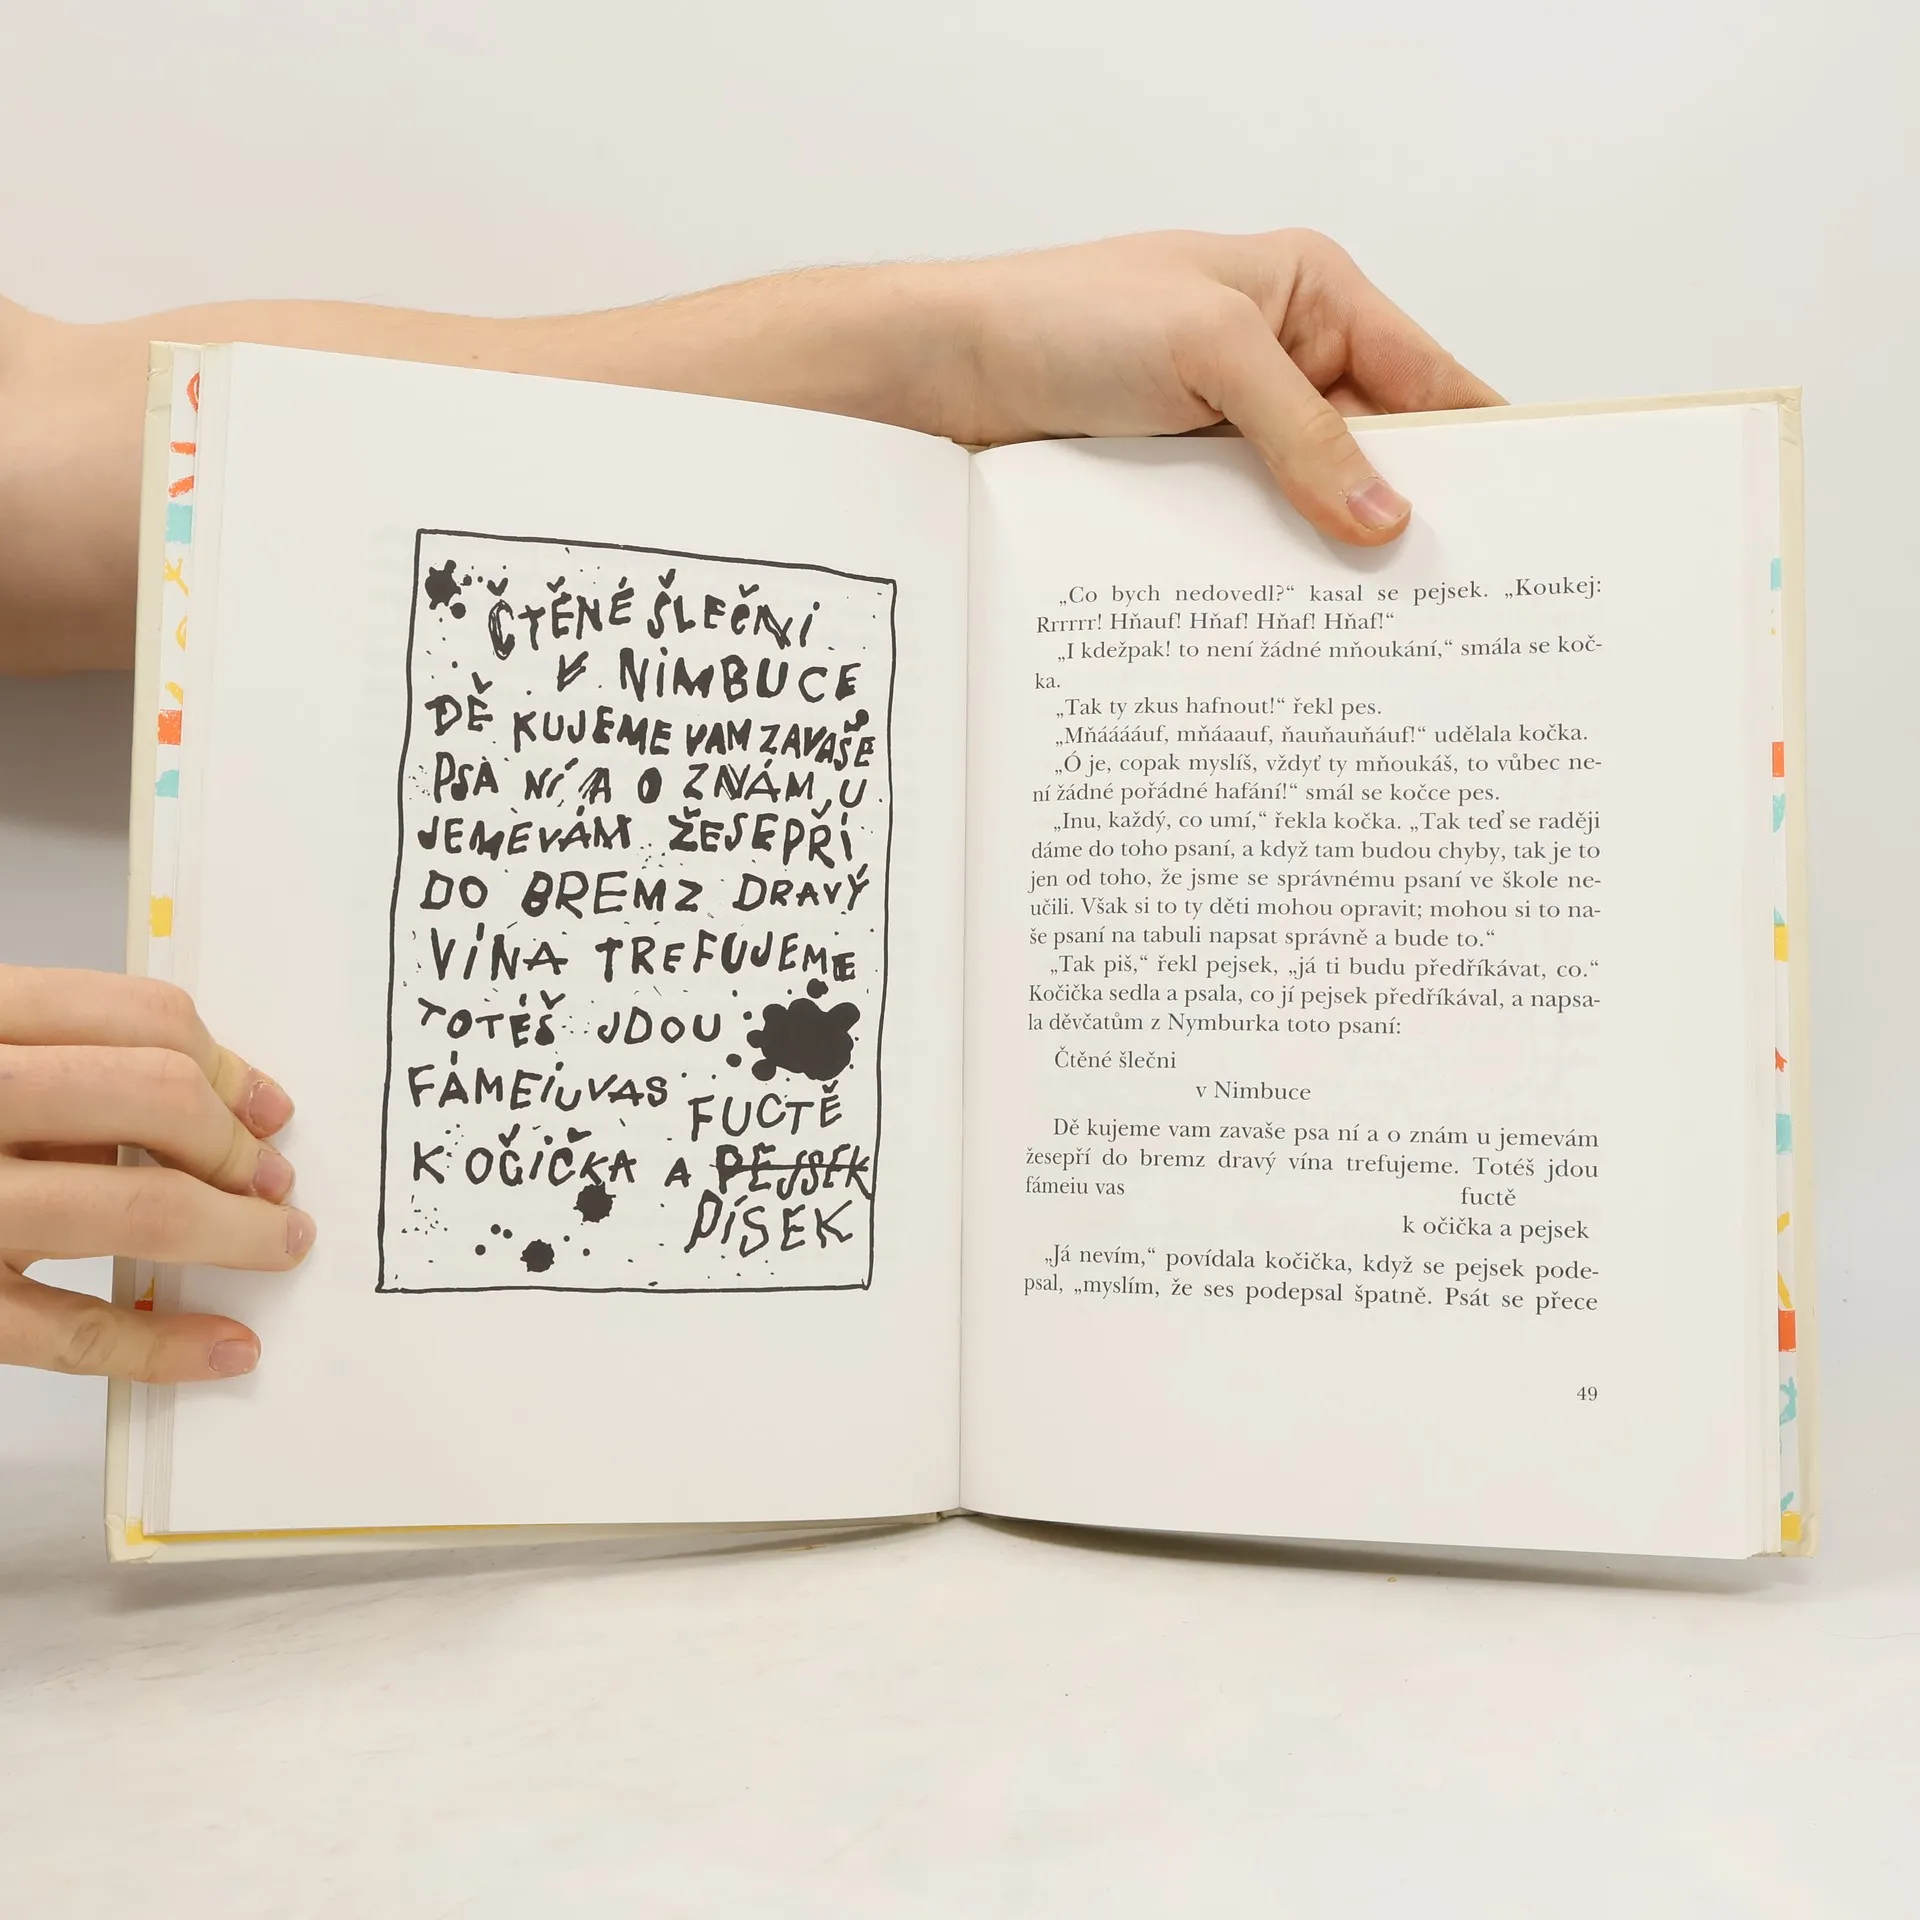 ČTĚNÉ ŠLEČNI
V NIMBUCE
DĚ KUJEME VAM ZAVAŠE
PSA NÍ A O ZNÁM U
JEMEVÁM ŽESEPŘÍ
DO BREMZ DRAVÝ
VÍNA TREFUJEME
TOTÉŠ JDOU
FÁMEIUVAS
FUCTĚ
K OČIČKA A PEJSEK
PÍSEK
„Co bych nedovedl?“ kasal se pejsek. „Koukej:
Rrrrrr! Hňauf! Hňaf! Hňaf! Hňaf!“
„I kdežpak! to není žádné mňoukání,“ smála se koč-
ka.
„Tak ty zkus hafnout!“ řekl pes.
„Mňááááuf, mňáaauf, ňauňauňáuf!“ udělala kočka.
„Ó je, copak myslíš, vždyť ty mňoukáš, to vůbec ne-
ní žádné pořádné hafání!“ smál se kočce pes.
„Inu, každý, co umí,“ řekla kočka. „Tak teď se raději
dáme do toho psaní, a když tam budou chyby, tak je to
jen od toho, že jsme se správnému psaní ve škole ne-
učili. Však si to ty děti mohou opravit; mohou si to na-
še psaní na tabuli napsat správně a bude to.“
„Tak piš,“ řekl pejsek, „já ti budu předříkávat, co.“
Kočička sedla a psala, co jí pejsek předříkával, a napsa-
la děvčatům z Nymburka toto psaní:
Čtěné šlečni
v Nimbuce
Dě kujeme vam zavaše psa ní a o znám u jemevám
žesepří do bremz dravý vína trefujeme. Totéš jdou
fámeiu vas
fuctě
k očička a pejsek
„Já nevím,“ povídala kočička, když se pejsek pode-
psal, „myslím, že ses podepsal špatně. Psát se přece
49